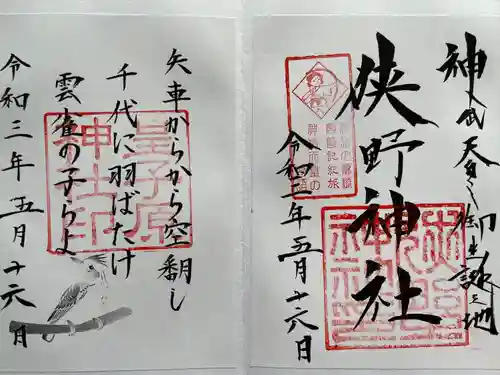 神武天皇御生誕之地
狭野神社
令和三年五月十六日
矢車からから空翻し
千代に羽ばたけ
雲雀の子らよ
令和三年五月十六日
皇子原
神社印